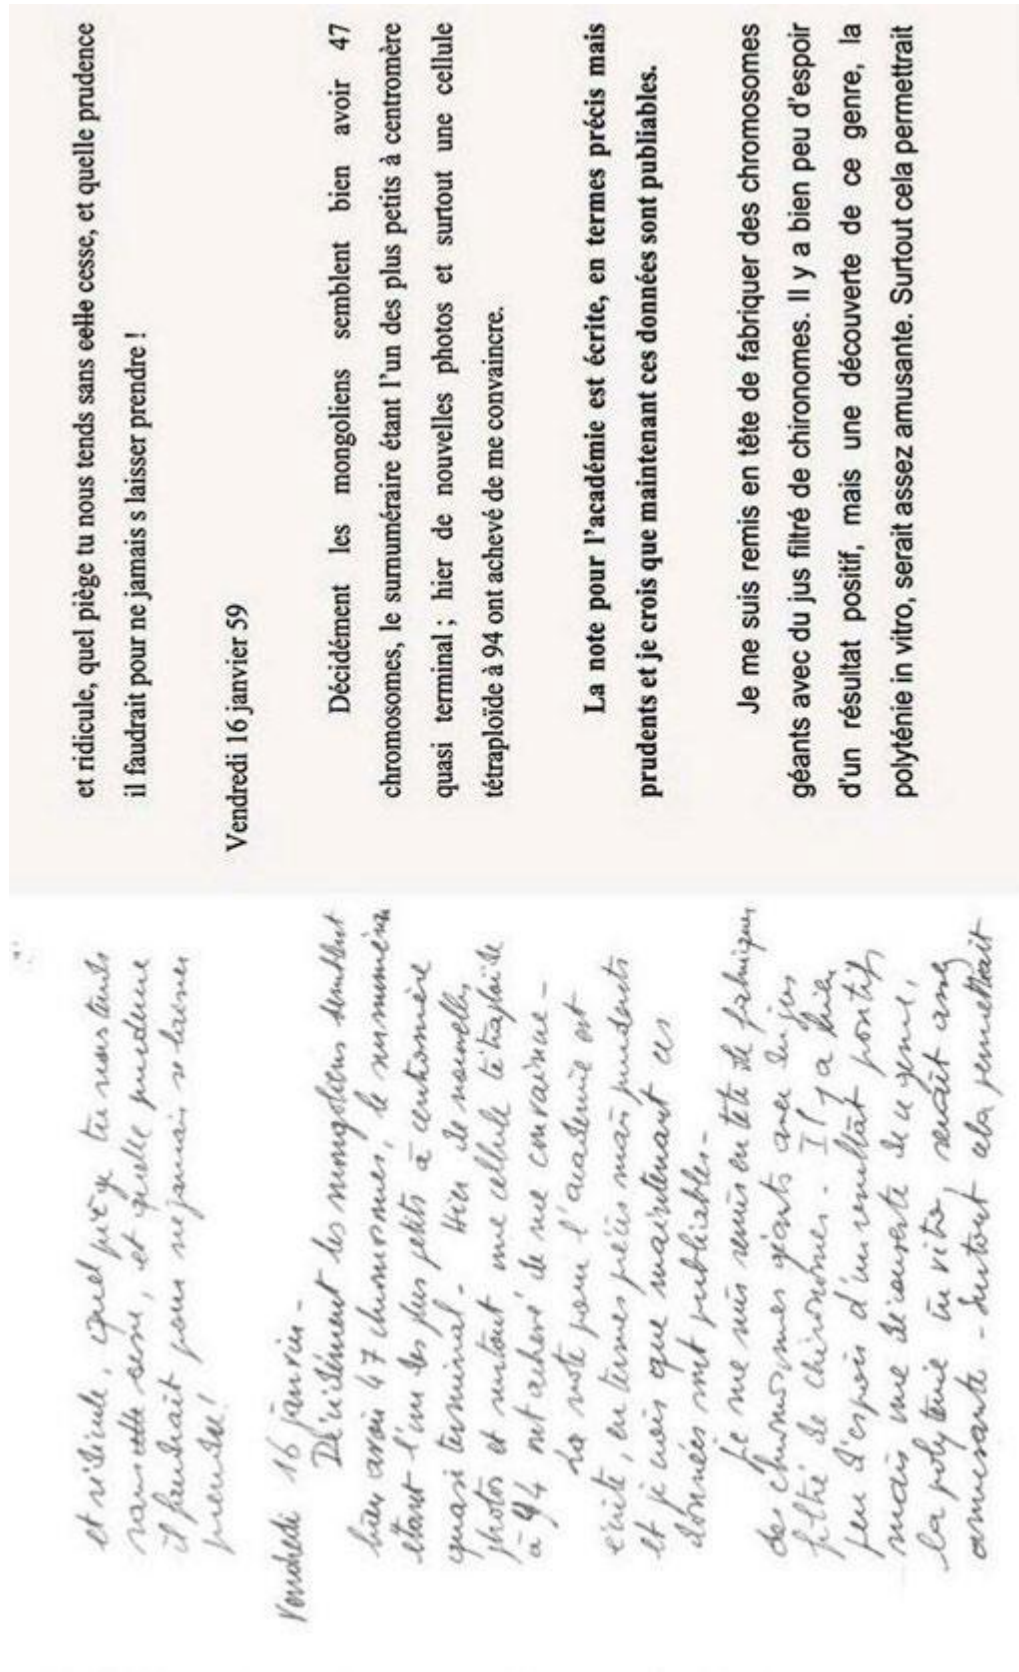 et ridicule, quel piège tu nous tends
sans cette cesse, et quelle prudence
il faudrait pour ne jamais se laisser
prendre!
Vendredi 16 janvier-
Décidément les mongoliens semblent
bien avoir 47 chromosomes, le surnuméraire
étant l'un des plus petits à centromère
quasi terminal- Hier de nouvelles
photos et surtout une cellule tétraploïde
à 94 ont achevé de me convaincre-
La note pour l'académie est
écrite, en termes précis mais prudents
et je crois que maintenant ces
données sont publiables-
Je me suis remis en tête de fabriquer
des chromosomes géants avec du jus
filtré de chironomes. Il y a bien
peu d'espoir d'un resultat positif,
mais une découverte de ce genre,
la polytenie in vitro, serait assez
amusante- Surtout cela permettrait
et ridicule, quel piège tu nous tends sans celle cesse, et quelle prudence
il faudrait pour ne jamais s laisser prendre !
Vendredi 16 janvier 59
Décidément les mongoliens semblent bien avoir 47
chromosomes, le surnuméraire étant l'un des plus petits à centromère
quasi terminal ; hier de nouvelles photos et surtout une cellule
tétraploïde à 94 ont achevé de me convaincre.
La note pour l'académie est écrite, en termes précis mais
prudents et je crois que maintenant ces données sont publiables.
Je me suis remis en tête de fabriquer des chromosomes
géants avec du jus filtré de chironomes. Il y a bien peu d'espoir
d'un résultat positif, mais une découverte de ce genre, la
polyténie in vitro, serait assez amusante. Surtout cela permettrait